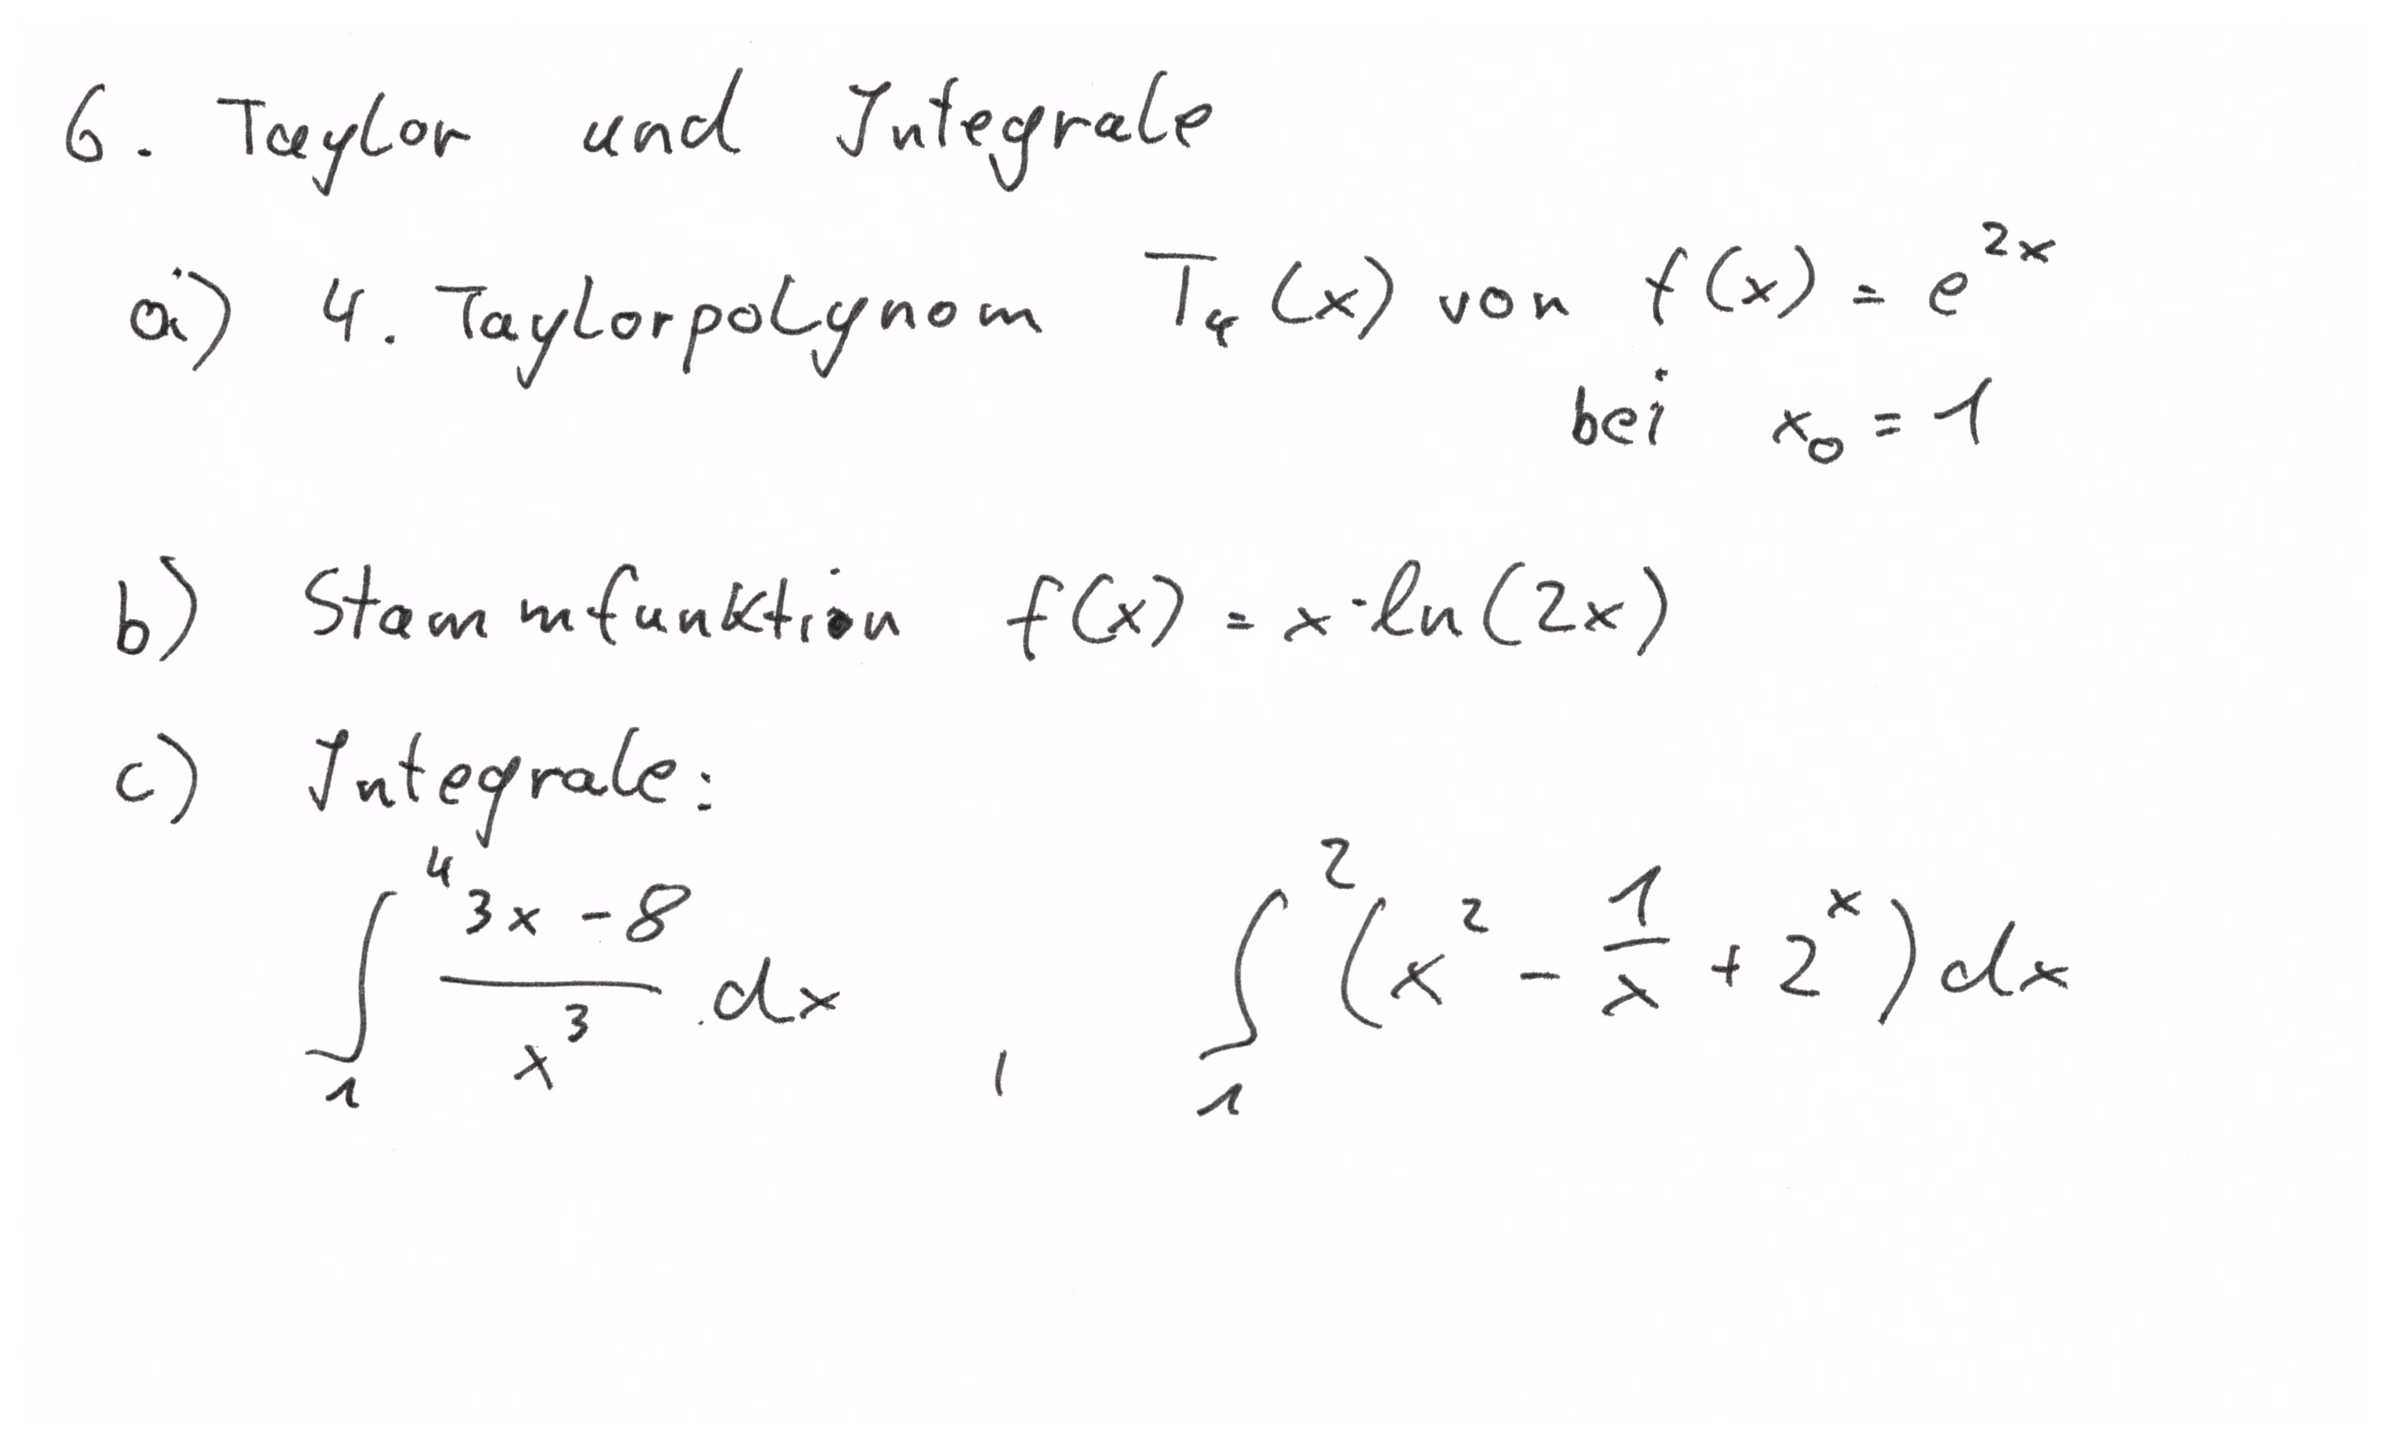 6. Taylor und Integrale
a) 4. Taylorpolynom T₄(x) von f(x) = e^{2x}
bei x₀ = 1
b) Stammfunktion f(x) = x·ln(2x)
c) Integrale:
∫₁⁴ (3x - 8)/x³ dx , ∫₁² (x² - 1/x + 2^x) dx